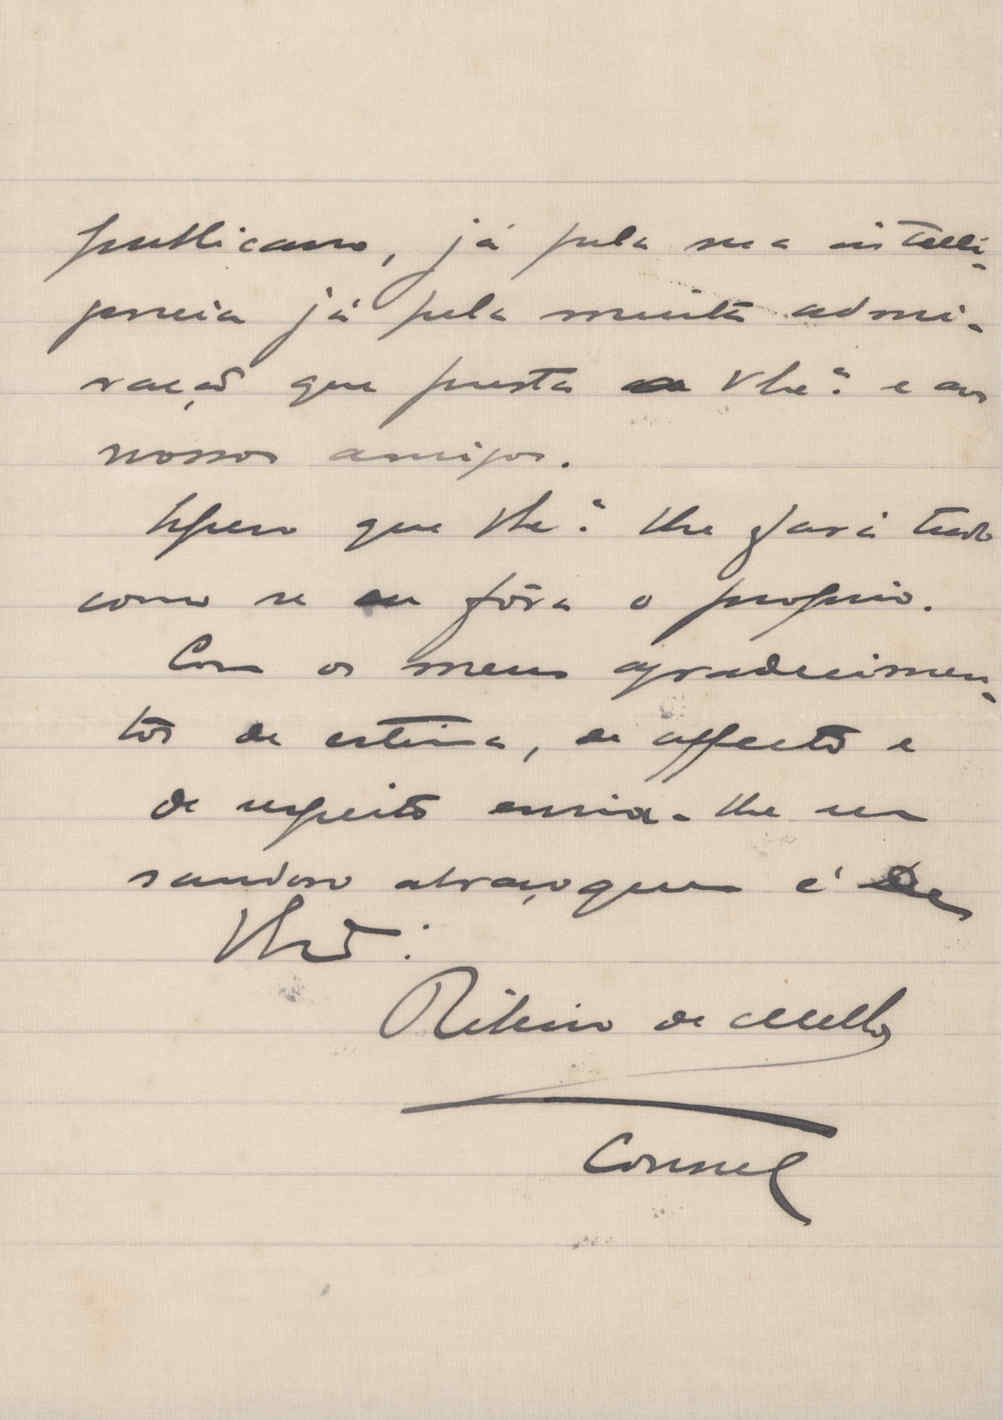 publicano, já pela sua intelli-
gencia já pela muita admi-
ração que presta a V. Exª. e aos
nossos amigos.
Espero que V. Exª. lhe fará tudo
como se eu fôra o proprio.
Com os meus agradecimen-
tos de estima, de affecto e
de respeito envia-lhe um
saudoso abraço quem é De
V. Exª.
Ribeiro de Mello
Coronel